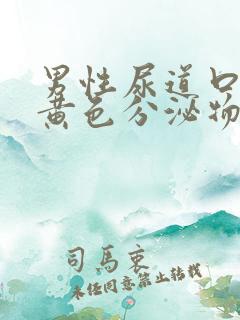 男性尿道口
黄色分泌物
司馬衷
未经同意禁止转载